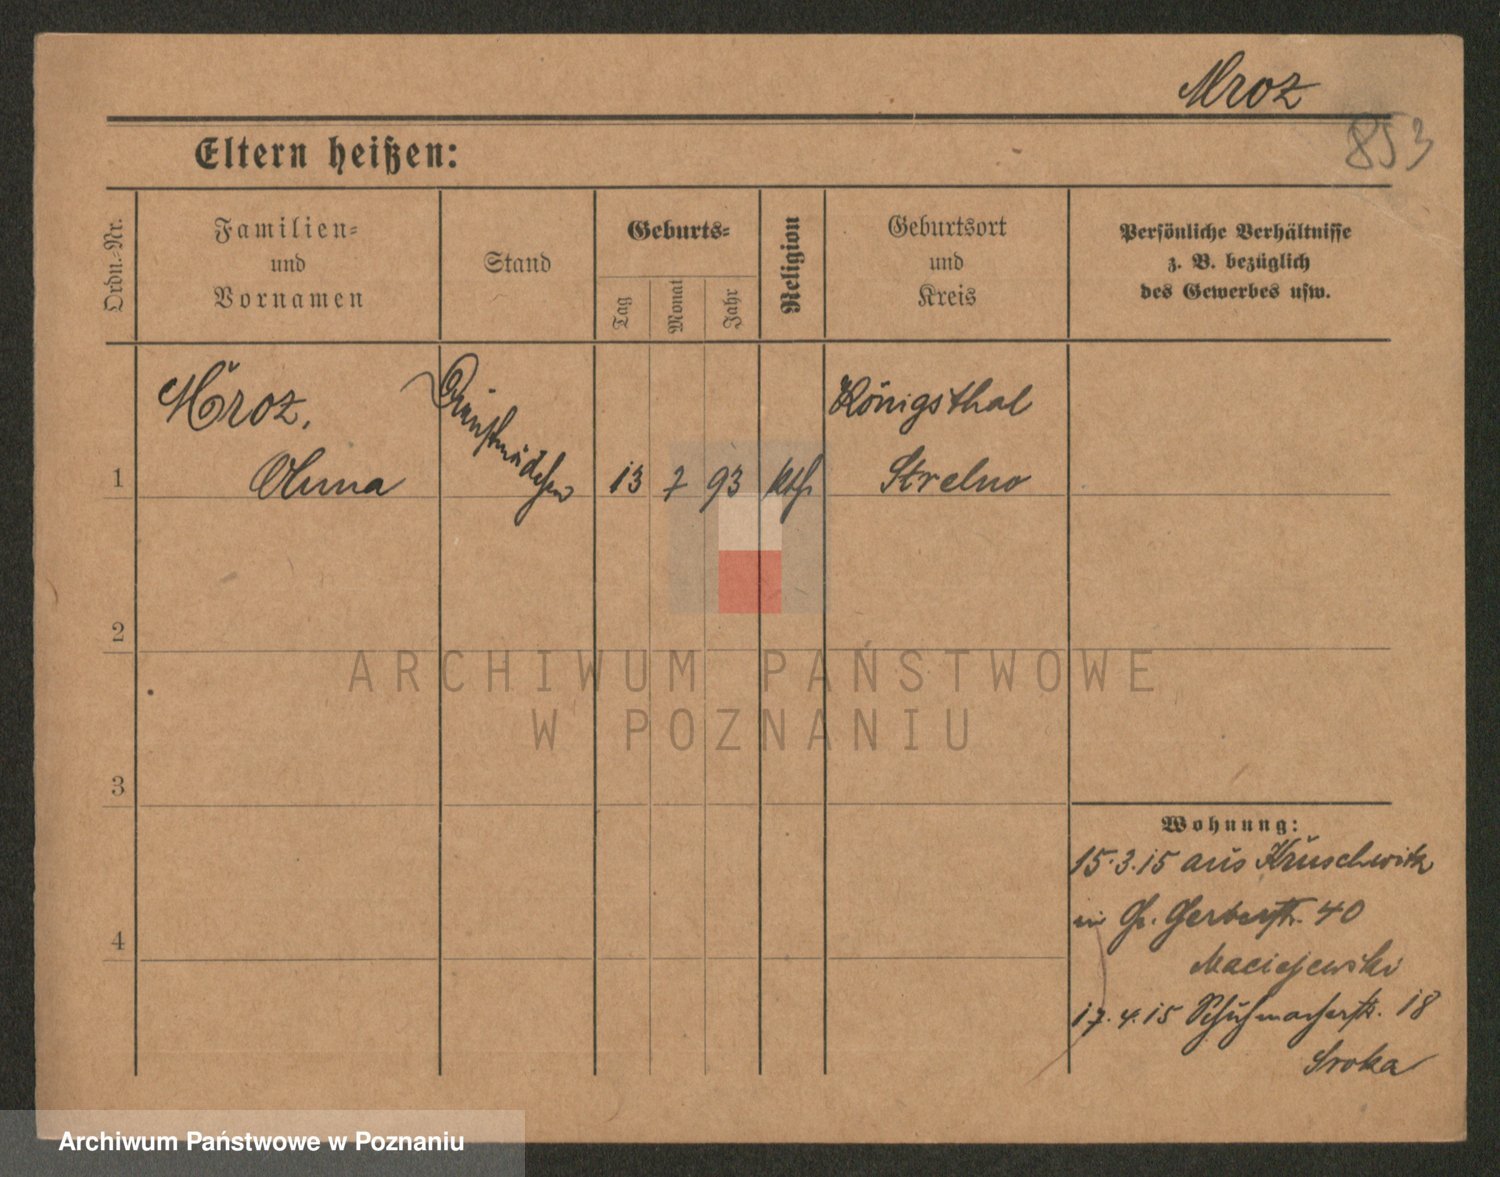 Mroz
853
Eltern heißen:
Ordn.-Nr.
Familien-
und
Vornamen
Stand
Geburts-
Tag
Monat
Jahr
Religion
Geburtsort
und
Kreis
Persönliche Verhältnisse
z. B. bezüglich
des Gewerbes usw.
Mroz,
Anna
Dienstmädchen
1
13
7
93
kth
Königsthal
Strelno
2
ARCHIWUM PAŃSTWOWE
W POZNANIU
3
Wohnung:
15.3.15 aus Kruschwitz
in Gr. Gerberstr. 40
Maciejewski
4
17.4.15 Schuhmacherstr. 18
Sroka
Archiwum Państwowe w Poznaniu